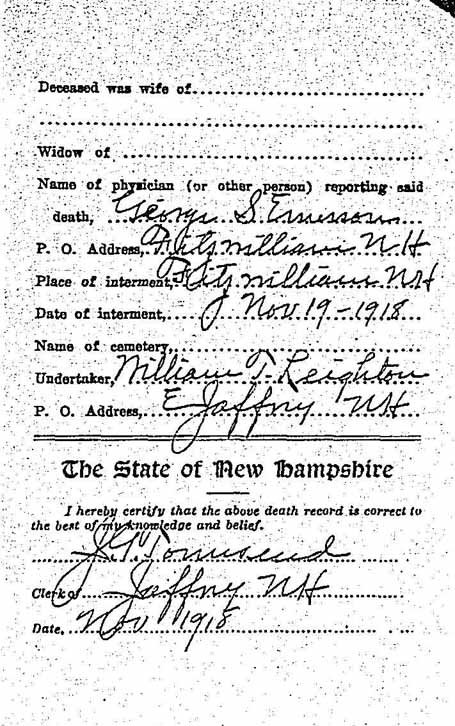 Deceased was wife of
Widow of
Name of physician (or other person) reporting said
death, George S. Emerson
P. O. Address, Fitzwilliam NH
Place of interment, Fitzwilliam NH
Date of interment, Nov 19-1918
Name of cemetery,
Undertaker, William T. Leighton
P. O. Address, E Jaffry NH
The State of New Hampshire
I hereby certify that the above death record is correct to
the best of my knowledge and belief.
Townsend
Clerk of Jaffry NH
Date, Nov 1918